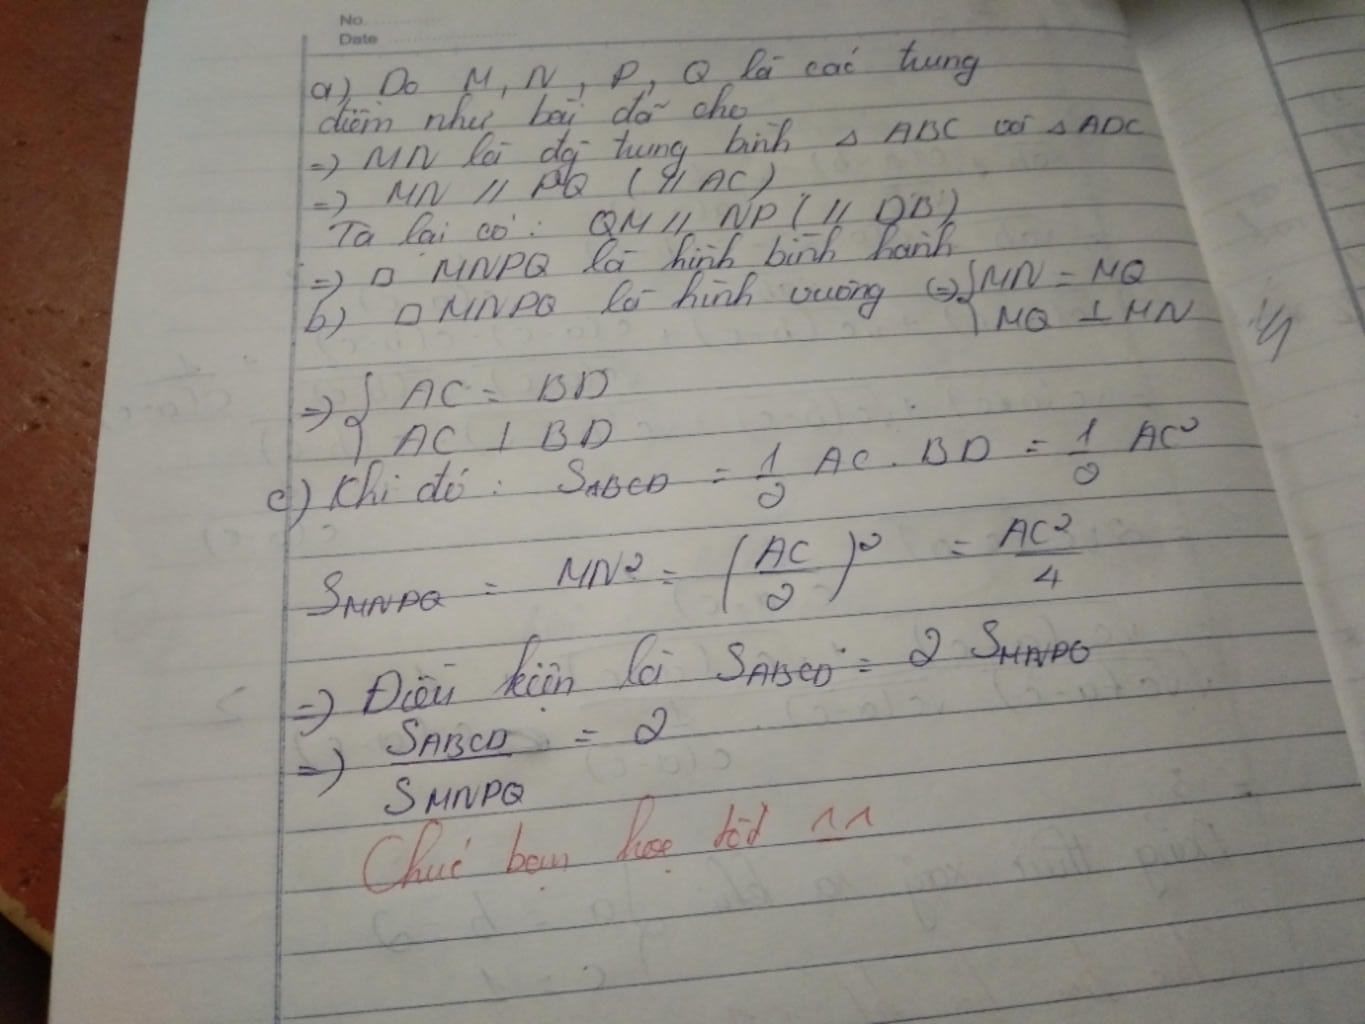 No.
Date
a) Do M, N, P, Q là các trung
điểm như bài đã cho
=> MN là đg trung bình △ ABC và △ ADC
=> MN // PQ (// AC)
Ta lại có: QM // NP (// DB)
=> □ MNPQ là hình bình hành
b) □ MNPQ là hình vuông (=> { MN = MQ
MQ ⊥ MN
=> { AC = BD
AC ⊥ BD
c) Khi đó: S_ABCD = 1/2 AC . BD = 1/2 AC²
S_MNPQ = MN² = (AC/2)² = AC²/4
=> Điều kiện là S_ABCD = 2 S_MNPQ
=> S_ABCD/S_MNPQ = 2
Chúc bạn học tốt ^^